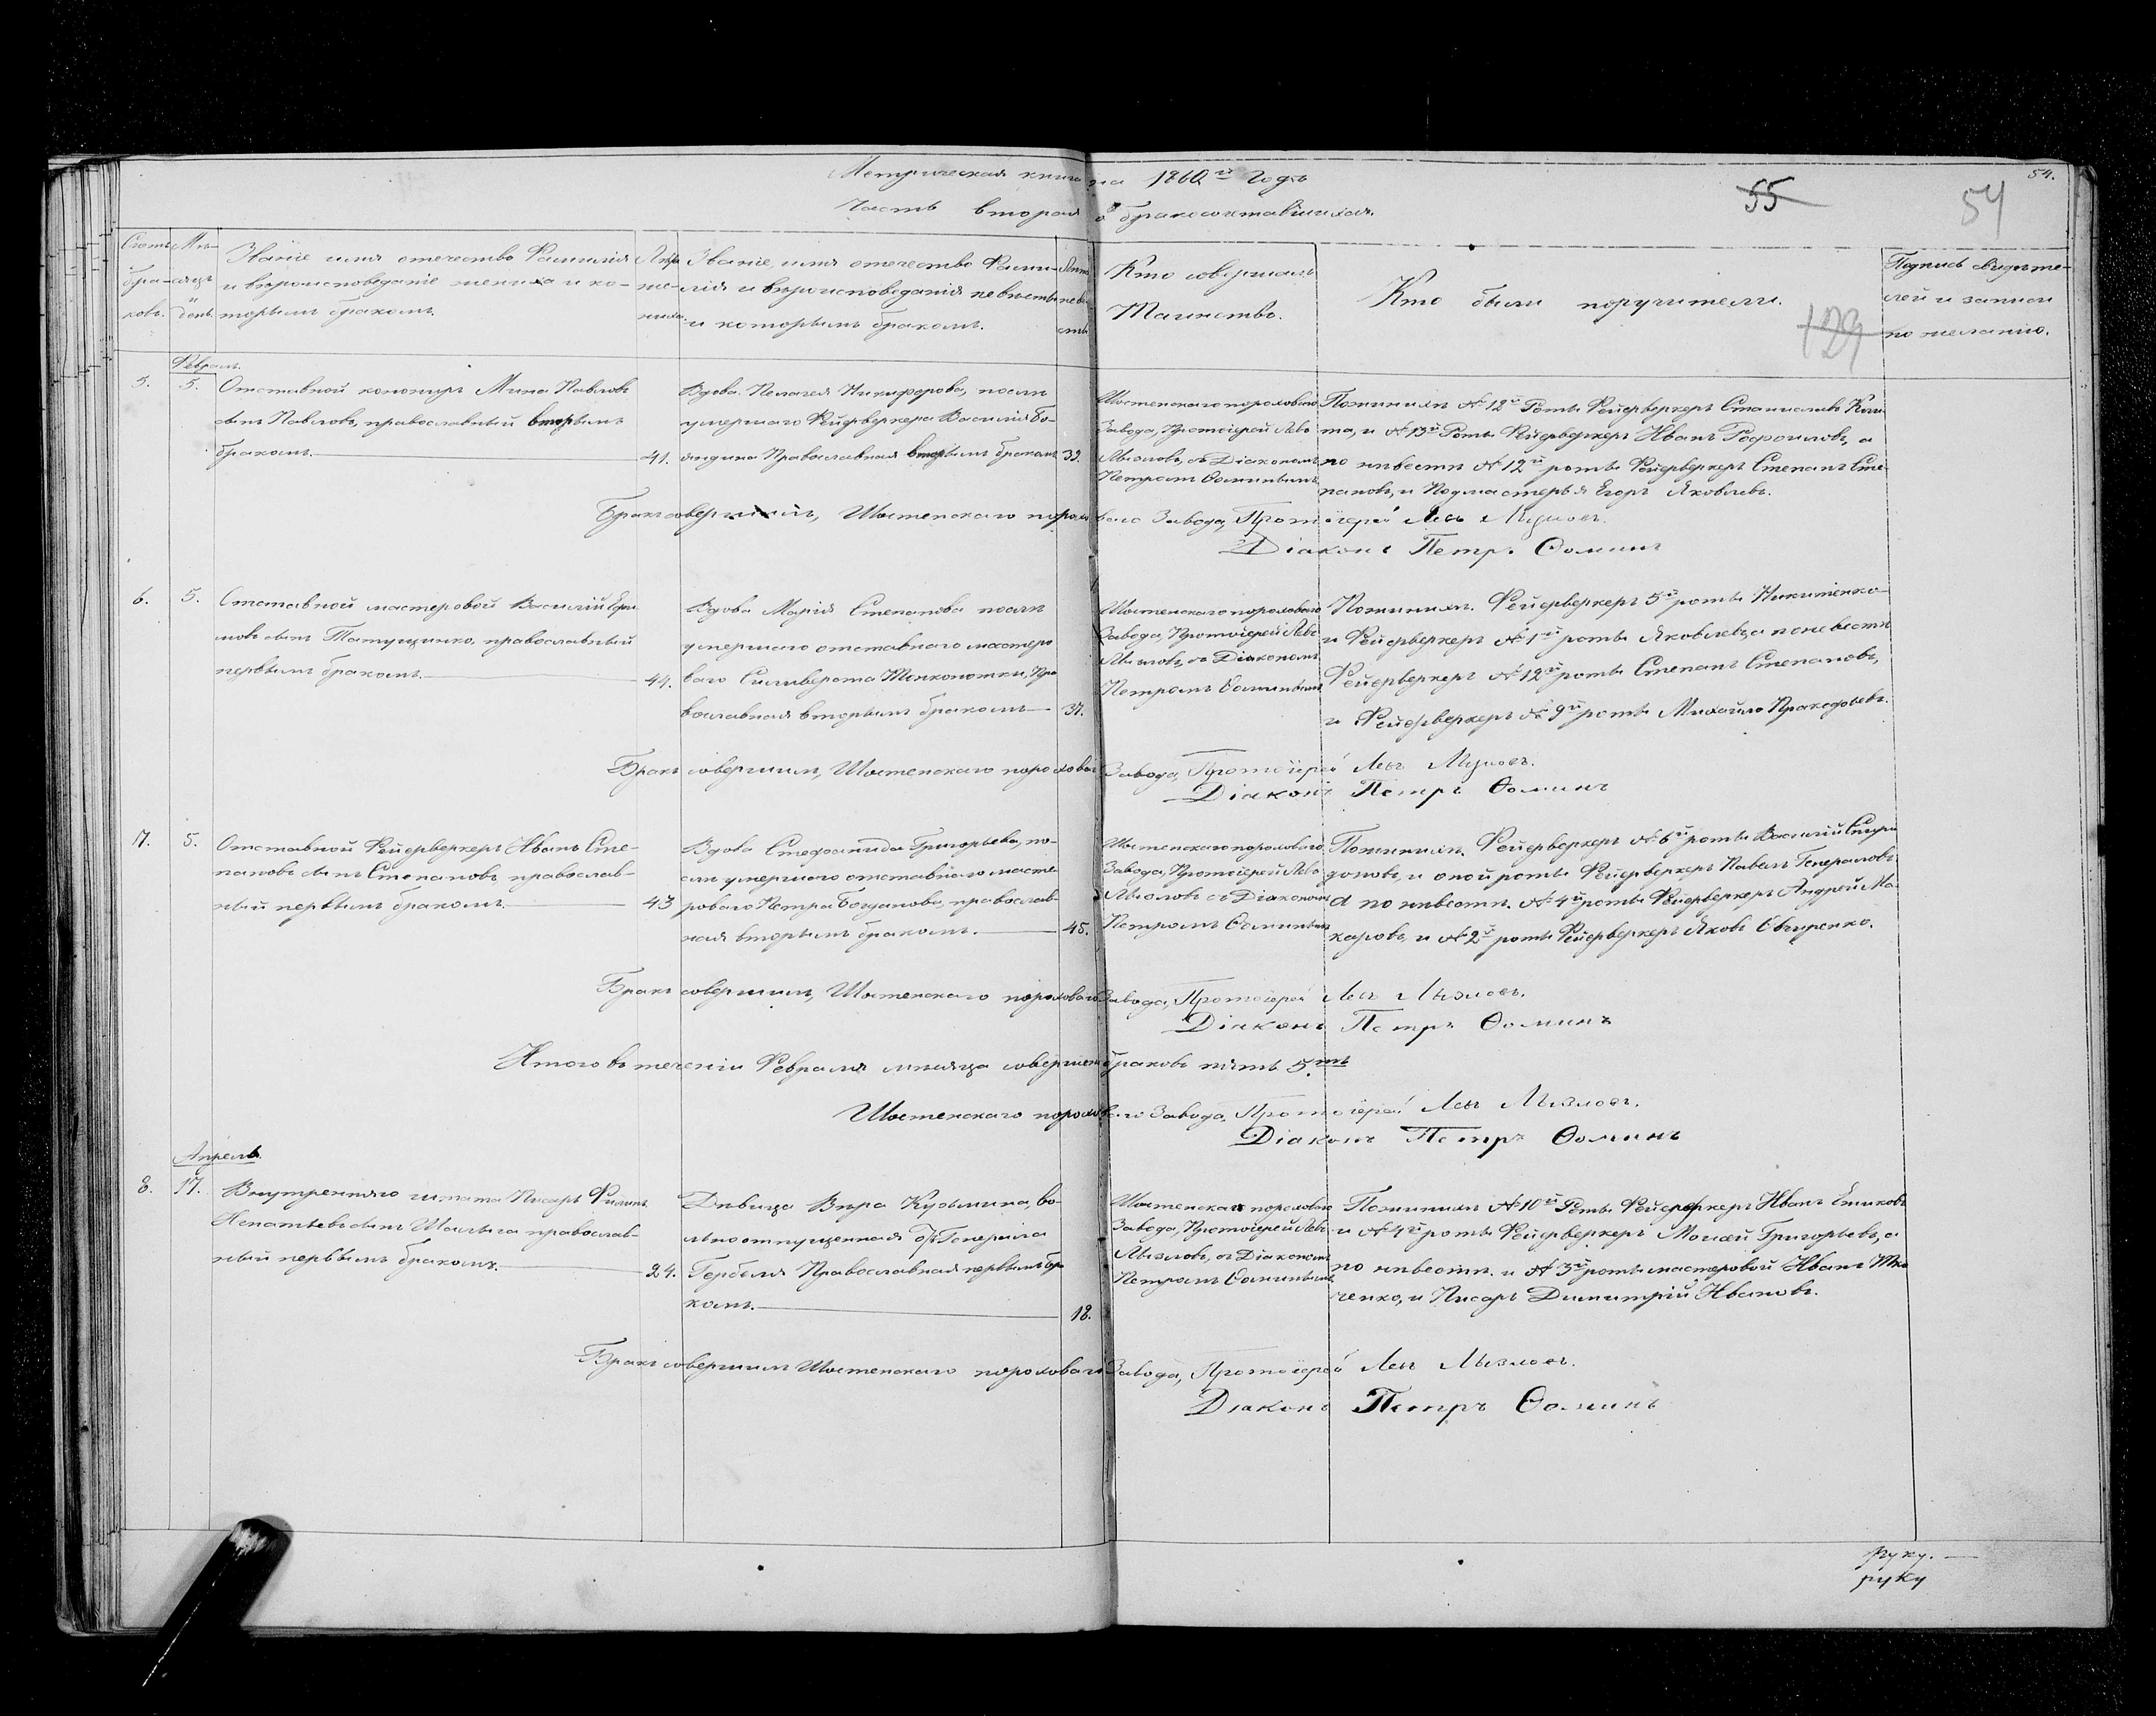 Метрическая книга на 1860й Годъ
54.
Часть вторая о бракосочтавшихся.
55
54
129
Счетъ браковъ.
Мѣсяцъ день.
Званіе имя отечество Фамилія
и вѣроисповеданіе жениха и ко-
торымъ бракомъ.
Лѣта жениха.
Званіе, имя отечество Фами-
лія и вѣроисповеданія невѣсты
и которымъ бракомъ.
Лѣта невѣсты
Кто совершалъ
Таинство.
Кто были поручители.
Подпись свидѣте-
лей и записи
по желанію.
Февраль.
5. 5.
Отставной канониръ Мина Павловъ
сынъ Павловъ, православный вторымъ
бракомъ. 41.
Вдова Пелагея Никифорова, послѣ
умершаго Фейерверкера Василія Бо-
ядина Православная вторымъ бракомъ 39.
Шостенскаго пороховаго
Завода, Протоіерей Левъ
Мызловъ, съ Діакономъ
Петромъ Ѳоминымъ
По женихѣ №12й Роты Фейерверкеръ Станиславъ
и №13й Роты Фейерверкеръ Иванъ а
по нивестѣ №12й роты Фейерверкеръ Степанъ Сте-
пановъ, и Подмастерья Егоръ Яковлевъ.
Бракъ совершилъ, Шостенскаго пороховаго Завода, Протоіерей Левъ Мызловъ.
Діаконъ Петръ Ѳоминъ
6. 5.
Отставной мастеровой Василій
сынъ Татущинко, православный
первымъ бракомъ. 44.
Вдова Марія Степанова послѣ
умершаго отставнаго мастеро
ваго Силиверста Тонконожки, Пра
вославная вторымъ бракомъ 37.
Шостенскаго пороховаго
Завода, Протоіерей Левъ
Мызловъ, съ Діакономъ
Петромъ Ѳоминымъ
По женихѣ. Фейерверкеръ 5й роты Никитенко
и Фейерверкеръ №1й роты Яковлевъ, а по невестѣ
Фейерверкеръ №12й роты Степанъ Степановъ,
и Фейерверкеръ №9й роты Михайло Праксдовевъ.
Бракъ совершилъ, Шостенскаго пороховаго Завода, Протоіерей Левъ Мызловъ.
Діаконъ Петръ Ѳоминъ
7. 5.
Отставной Фейерверкеръ Иванъ Сте-
пановъ сынъ Степановъ, православ-
ный первымъ бракомъ. 43
Вдова Стефанида Григорьева, по-
слѣ умершаго отставнаго масте-
роваго Петра Богданова, православ-
ная вторымъ бракомъ. 45.
Шостенскаго пороховаго
Завода, Протоіерей Левъ
Мызловъ съ Діакономъ
Петромъ Ѳоминымъ
По женихѣ. Фейерверкеръ №6й роты Василій Спири
доновъ, и оной роты Фейерверкеръ Павелъ Генераловъ
а по нивестѣ. №4й роты Фейерверкеръ Андрей Ма-
каровъ, и №2й роты Фейерверкеръ Яковъ Овчиренко.
Бракъ совершилъ, Шостенскаго пороховаго Завода, Протоіерей Левъ Мызловъ.
Діаконъ Петръ Ѳоминъ
Итого въ теченіи Февраля мѣсяца совершено браковъ пять 5.ть
Шостенскаго пороховаго Завода, Протоіерей Левъ Мызловъ.
Діаконъ Петръ Ѳоминъ
Апрель.
8. 17.
Внутренняго штата Писарь Филипъ
Игнатьевъ сынъ православ-
ный первымъ бракомъ. 24.
Дѣвица Вѣра Кузьмина, во-
льноотпущенная отъ Генерала
Гербеля Православная первымъ бра
комъ. 18.
Шостенскаго пороховаго
Завода, Протоіерей Левъ
Мызловъ, съ Діакономъ
Петромъ Ѳоминымъ
По женихѣ №10й Роты Фейерверкеръ Иванъ
и №4й роты Фейерверкеръ Мосѣй Григорьевъ, а
по нивестѣ. и №3й роты мастеровой Иванъ
ченко, и Писарь Димитрій Ивановъ.
Бракъ совершилъ Шостенскаго пороховаго Завода, Протоіерей Левъ Мызловъ.
Діаконъ Петръ Ѳоминъ
руку.
руку